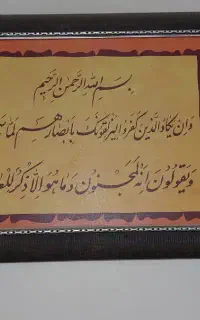 بسم الله الرحمن الرحیم
وَاِن یَکادُ الَّذینَ کَفَرُوا لَیُزلِقُونَکَ بِاَبصارِهِم لَمّا
وَیَقُولُونَ اِنَّهُ لَمَجنُونٌ وَما هُوَ اِلّا ذِکرٌ